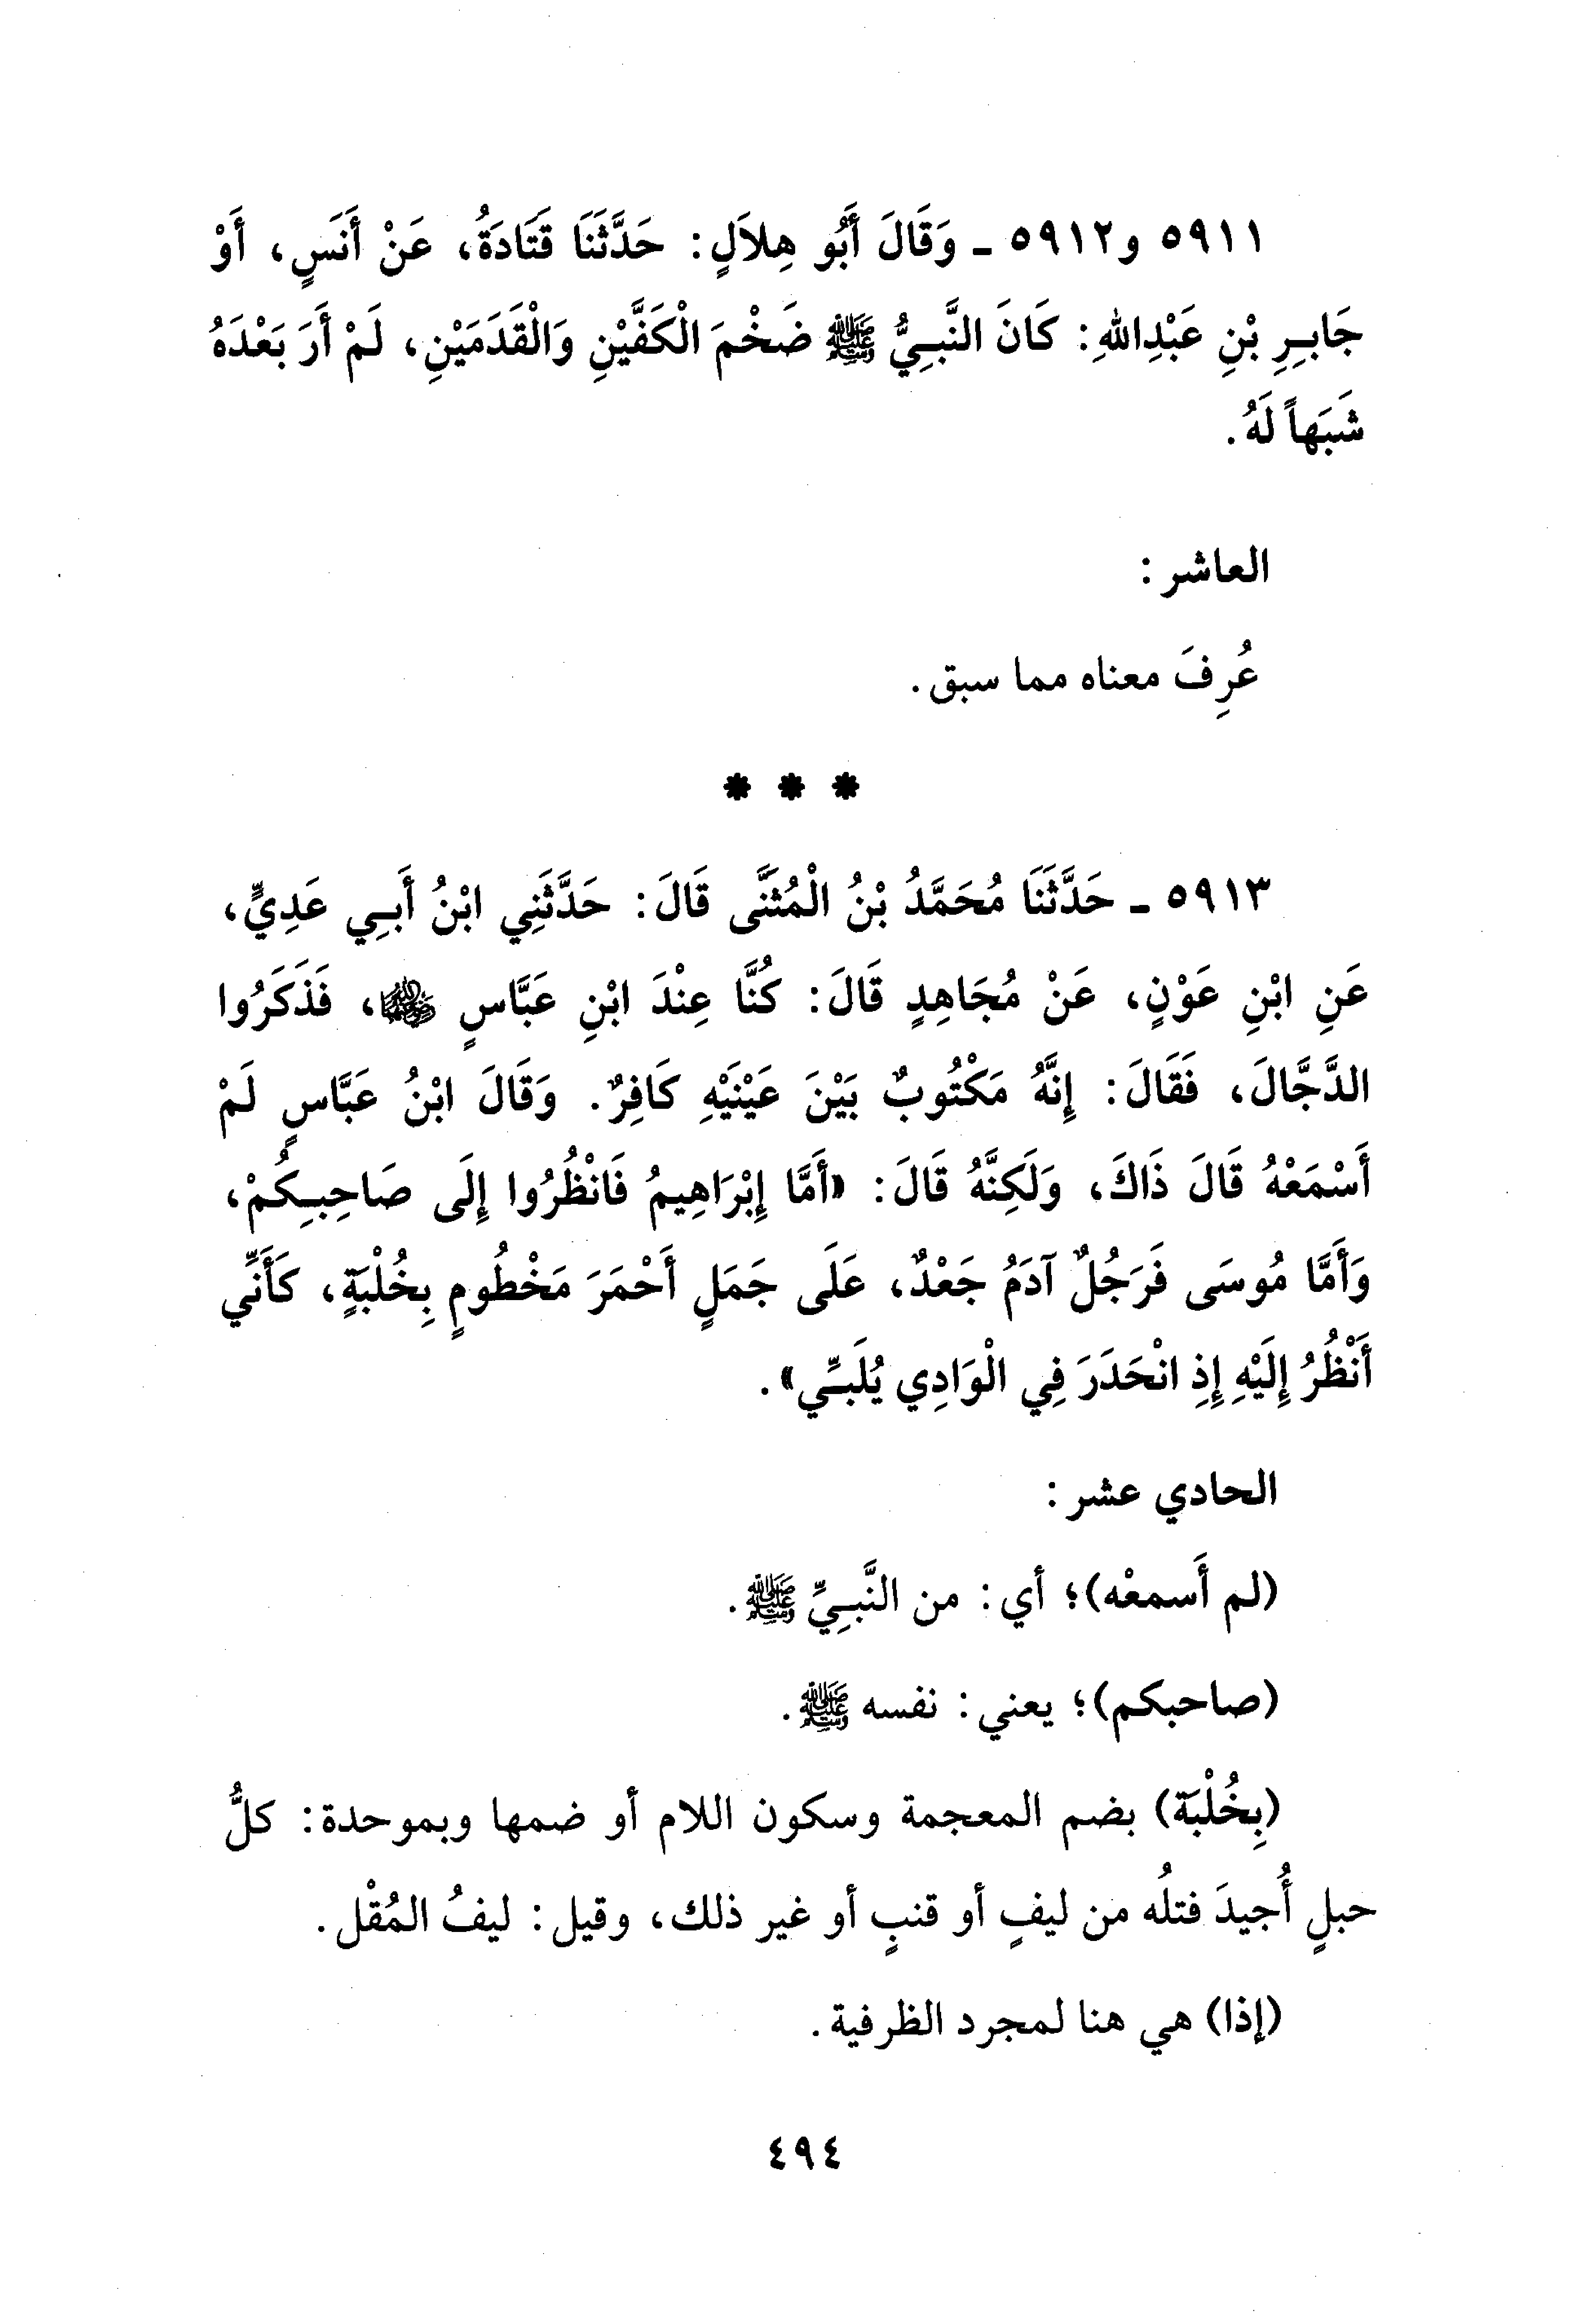 ٥٩١١ و٥٩١٢ ـ وَقَالَ أَبُو هِلاَلٍ: حَدَّثَنَا قَتَادَةُ، عَنْ أَنَسٍ، أَوْ
جَابِرِ بْنِ عَبْدِاللهِ: كَانَ النَّبِيُّ ﷺ ضَخْمَ الْكَفَّيْنِ وَالْقَدَمَيْنِ، لَمْ أَرَ بَعْدَهُ
شَبَهاً لَهُ.
العاشر:
عُرِفَ معناه مما سبق.
* * *
٥٩١٣ ـ حَدَّثَنَا مُحَمَّدُ بْنُ الْمُثَنَّى قَالَ: حَدَّثَنِي ابْنُ أَبِي عَدِيٍّ،
عَنِ ابْنِ عَوْنٍ، عَنْ مُجَاهِدٍ قَالَ: كُنَّا عِنْدَ ابْنِ عَبَّاسٍ ﵄، فَذَكَرُوا
الدَّجَّالَ، فَقَالَ: إِنَّهُ مَكْتُوبٌ بَيْنَ عَيْنَيْهِ كَافِرٌ. وَقَالَ ابْنُ عَبَّاسٍ لَمْ
أَسْمَعْهُ قَالَ ذَاكَ، وَلَكِنَّهُ قَالَ: «أَمَّا إِبْرَاهِيمُ فَانْظُرُوا إِلَى صَاحِبِكُمْ،
وَأَمَّا مُوسَى فَرَجُلٌ آدَمُ جَعْدٌ، عَلَى جَمَلٍ أَحْمَرَ مَخْطُومٍ بِخُلْبَةٍ، كَأَنِّي
أَنْظُرُ إِلَيْهِ إِذِ انْحَدَرَ فِي الْوَادِي يُلَبِّي».
الحادي عشر:
(لم أَسمعْه)؛ أي: من النَّبِيِّ ﷺ.
(صاحبكم)؛ يعني: نفسه ﷺ.
(بِخُلْبَة) بضم المعجمة وسكون اللام أو ضمها وبموحدة: كلُّ
حبلٍ أُجيدَ فتلُه من ليفٍ أو قنبٍ أو غير ذلك، وقيل: ليفُ المُقْل.
(إذا) هي هنا لمجرد الظرفية.
٤٩٤